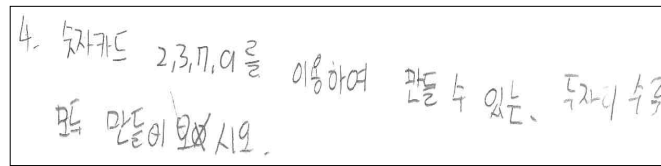 4. 숫자카드 2,3,7,9를 이용하여 만들 수 있는, 두자리 수를
모두 만들어 보시오.